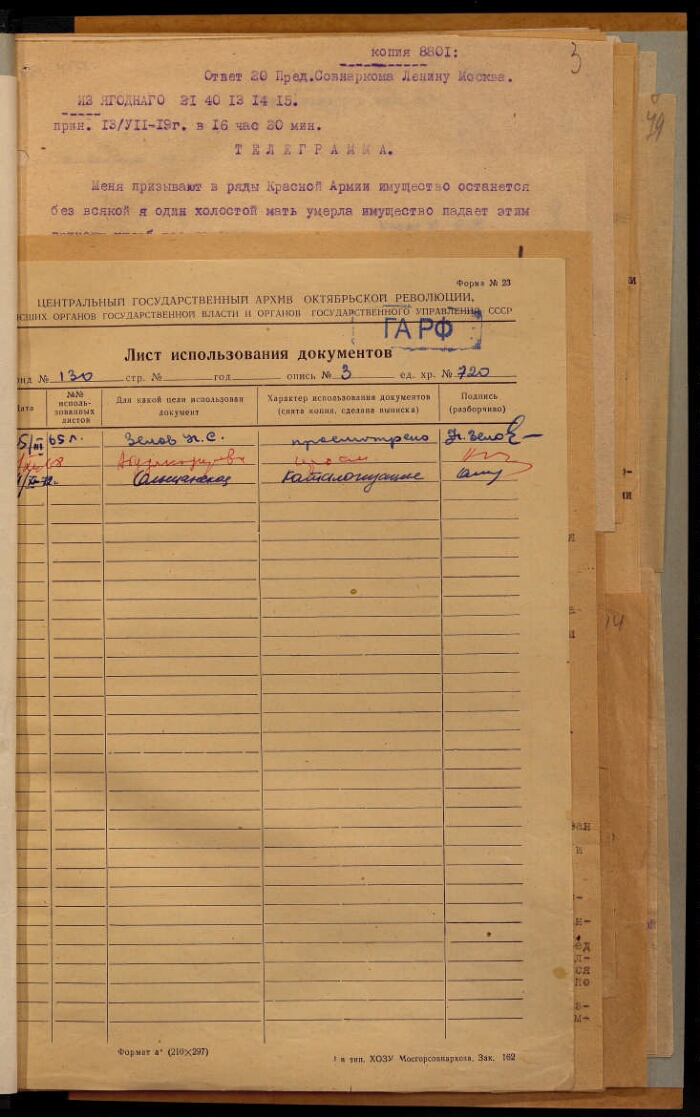 копия 8801:
3
Ответ 20 Пред.Совнаркома Ленину Москва.
ИЗ ЯГОДНАГО 21 40 13 14 15.
прин. 13/УІІ-19г. в 16 час 20 мин.
ТЕЛЕГРАММА.
Меня призывают в ряды Красной Армии имущество останется
без всякой я один холостой мать умерла имущество падает этим
Форма № 23
ЦЕНТРАЛЬНЫЙ ГОСУДАРСТВЕННЫЙ АРХИВ ОКТЯБРЬСКОЙ РЕВОЛЮЦИИ,
ВСШИХ ОРГАНОВ ГОСУДАРСТВЕННОЙ ВЛАСТИ И ОРГАНОВ ГОСУДАРСТВЕННОГО УПРАВЛЕНИЯ СССР
ГА РФ
Лист использования документов
онд № 130 стр. № год опись № 3 ед. хр. № 720
ата
№№ исполь-зованных листов
Для какой цели использован документ
Характер использования документов (снята копия, сделана выписка)
Подпись (разборчиво)
65 г. Зелов Н.С. просмотрено Н. Зелов
каталогизация
Формат а⁴ (210×297)
1 я тип. ХОЗУ Мосгорсовнархоза, Зак. 162